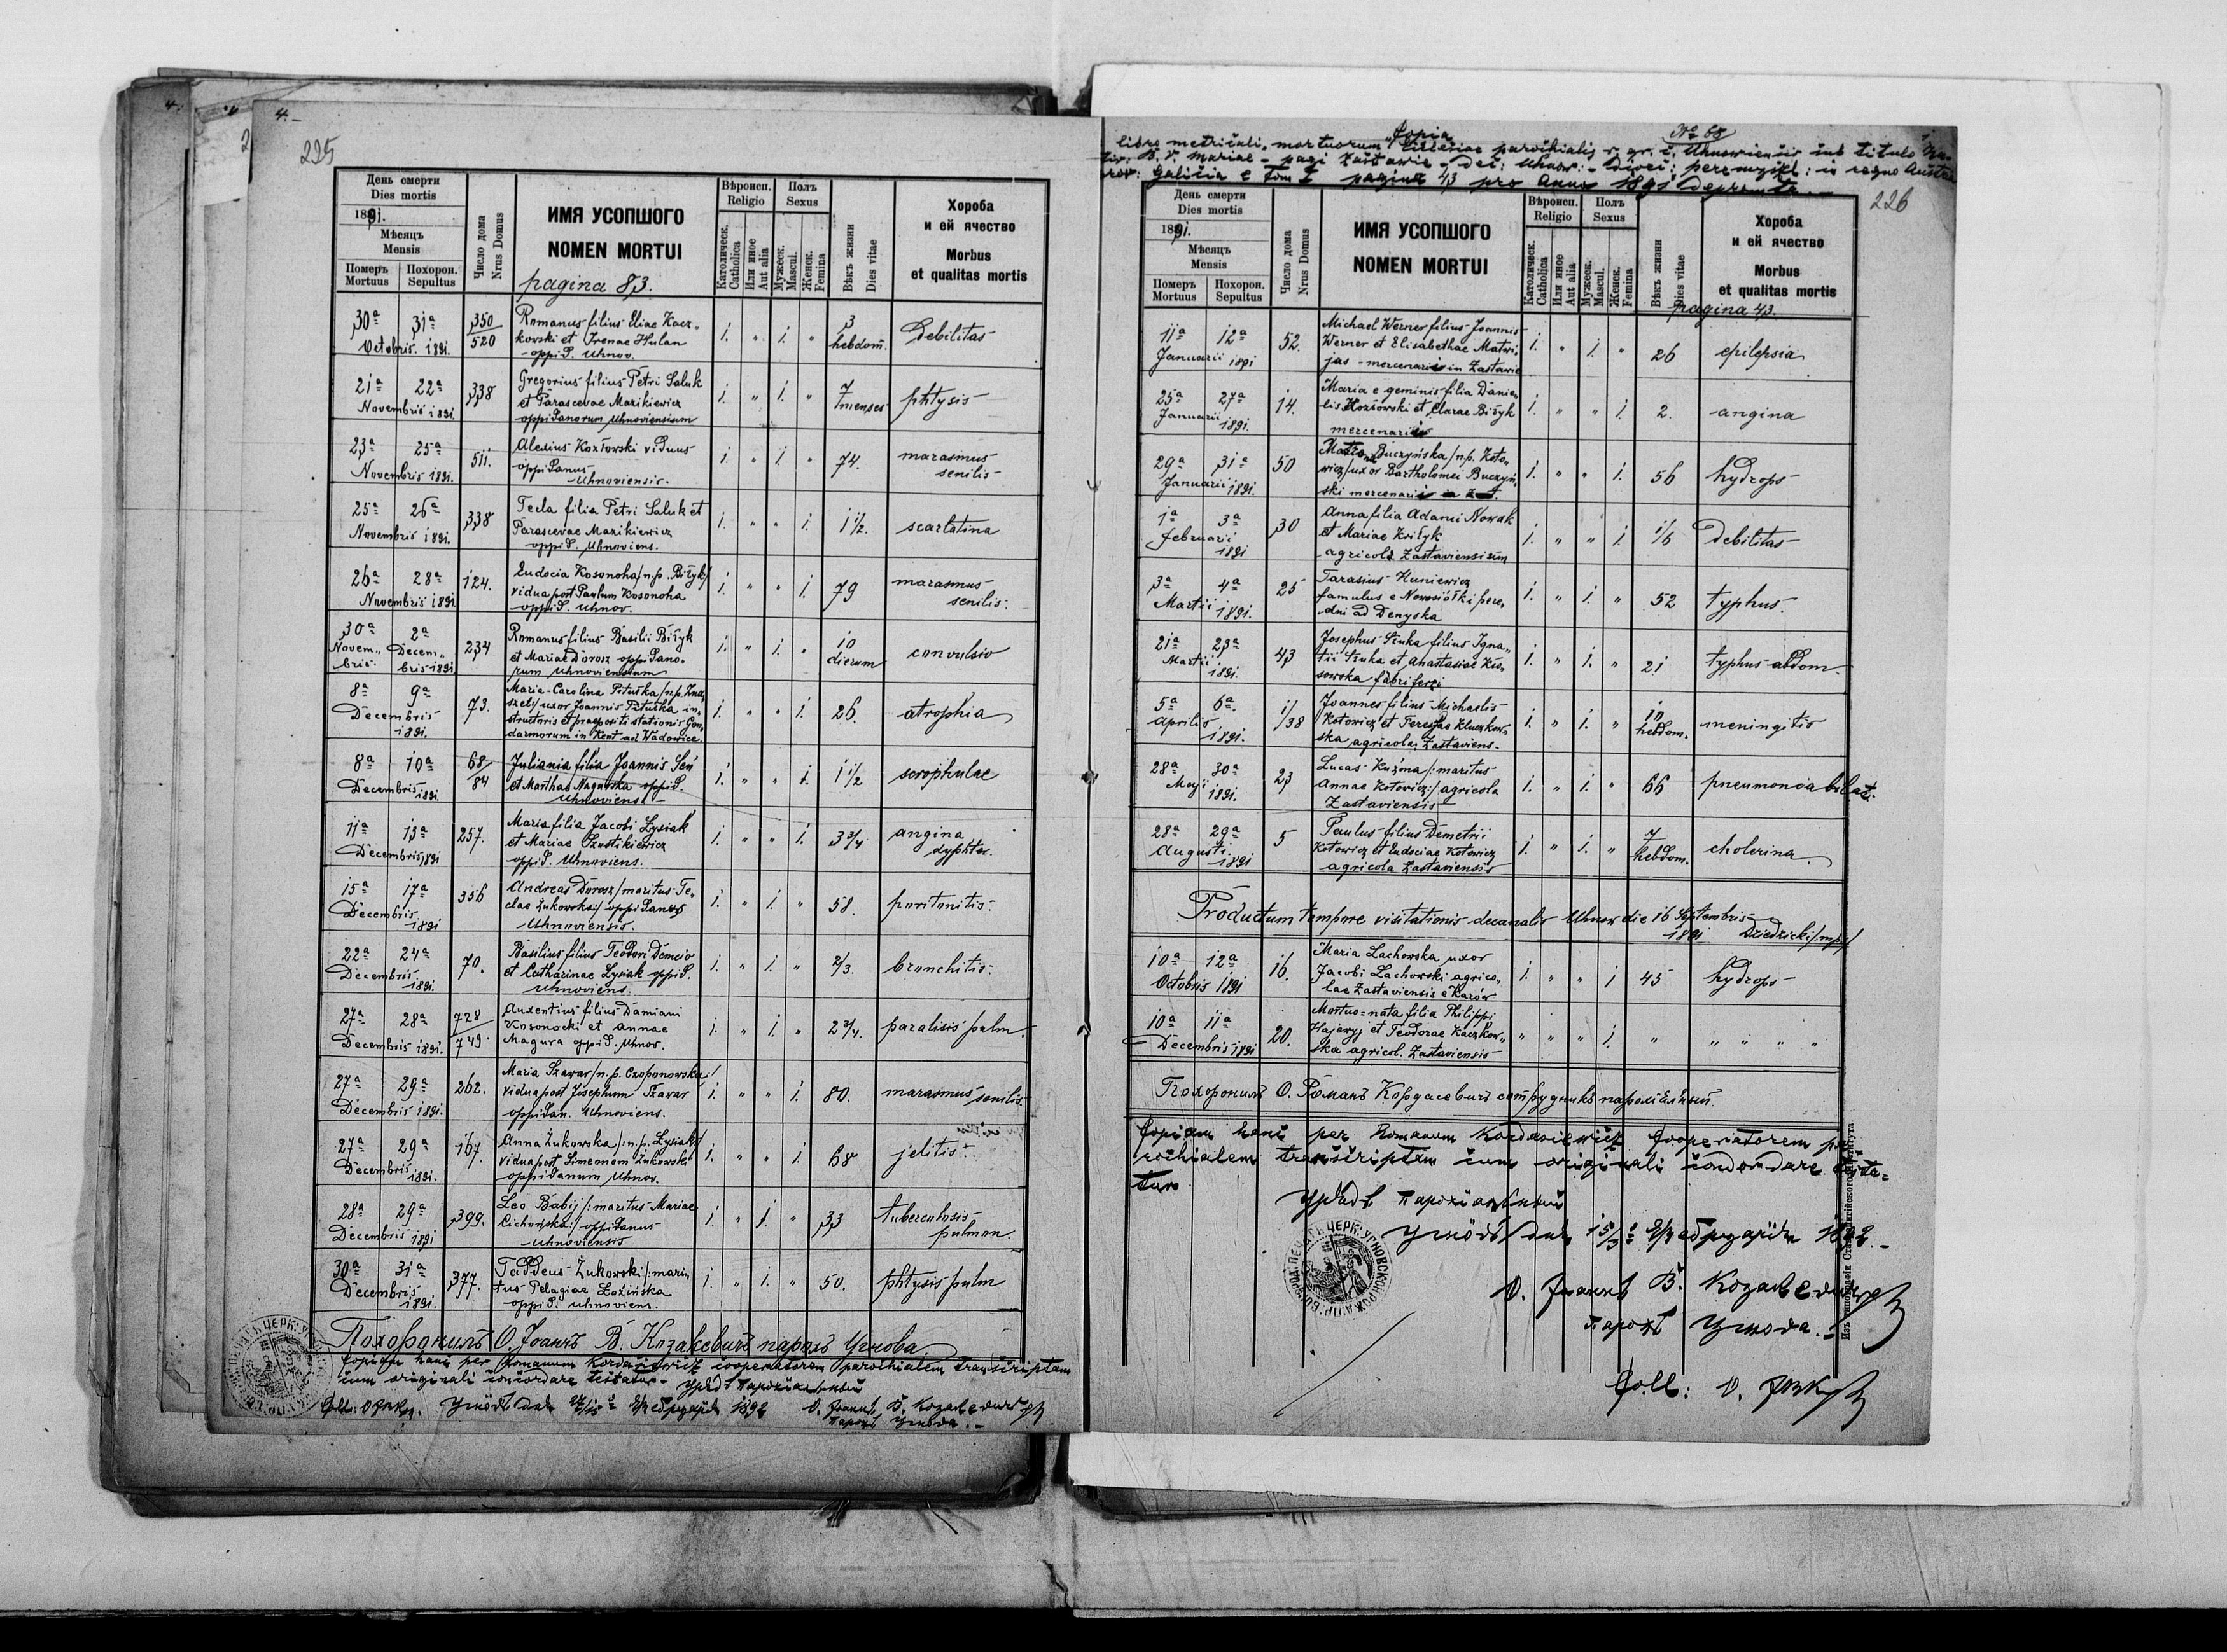 4.-
225
День смерти
Dies mortis
1891.
Мѣсяць
Mensis
Померъ Похорон.
Mortuus Sepultus
Число дома
Nrus Domus
ИМЯ УСОПШОГО
NOMEN MORTUI
pagina 83.
Вѣроисп.
Religio
Католическ.
Catholica
Или иное
Aut alia
Полъ
Sexus
Мужеск.
Mascul.
Женск.
Femina
Вѣкъ жизни
Dies vitae
Хороба
и ей ячество
Morbus
et qualitas mortis
30ª 31ª 350/520 Romanus filius Eliae Kacz„ 1. „ 1. „ 3 Debilitas
Octobris 1891. kowski et Irenae Hulan hebdom.
oppid. Uhnov.
21ª 22ª 338 Gregorius filius Petri Saluk 1. „ 1. „ 7 phtysis
Novembris 1891. et Parascevae Mazikiewicz menses
oppidanorum Uhnoviensium
23ª 25ª 511. Alexius Kozłowski viduus 1. „ 1. „ 74. marasmus
Novembris 1891. oppidanus senilis
Uhnoviensis.
25ª 26ª 338 Tecla filia Petri Saluk et 1. „ „ 1. 1 1/2. scarlatina
Novembris 1891. Parascevae Mazikiewicz
oppid. Uhnoviens.
26ª 28ª 124. Eudocia Kosonoha/n.p. Biłyk/ 1. „ „ 1. 79 marasmus
Novembris 1891. vidua post Paulum Kosonoha senilis.
oppid. Uhnov.
30ª 2ª 234 Romanus filius Basilii Biłyk 1. „ 1. „ 10 convulsio
Novem„ Decem„ et Mariae Dorosz oppidano„ dierum
bris bris 1891. rum Uhnoviensium
8ª 9ª 73. Maria-Carolina Pituśka/n.p. 1. „ „ 1. 26. atrophia
Decembris uxor Joannis Pituśka in„
1891. structoris et praepositi stationis Gen„
darmorum in Kent ad Wadowice.
8ª 10ª 68/84 Juliania filia Joannis Seń 1. „ „ 1. 1 1/2 scrophulae
Decembris 1891. et Marthae Nagurska oppid.
Uhnoviens.
11ª 13ª 257. Maria filia Jacobi Łysiak 1. „ „ 1. 3 3/4 angina
Decembris 1891 et Mariae dyphter.
oppid. Uhnoviens.
15ª 17ª 356 Andreas Dorosz/maritus Te„ 1. „ 1. „ 58. peritonitis.
Decembris clae Żukowska/ oppidanus
1891 Uhnoviensis.
22ª 24ª 70. Basilius filius Teodori Demcio 1. „ 1. „ 2/3. bronchitis.
Decembris et Catharinae Łysiak oppid.
1891. Uhnoviens.
27ª 28ª 728/749. Auxentius filius Damiani 1. „ 1. „ 2 3/4. paralisis pulm.
Decembris 1891. Kosonocki et Annae
Magura oppid. Uhnov.
27ª 29ª 262. Maria Szawar/n.p. Czoponowska:/ 1. „ „ 1. 80. marasmus senilis.
Decembris 1891. vidua post Josephum Szawar
oppidan. Uhnoviens.
27ª 29ª 167. Anna Żukowska/:n.p. Łysiak/ 1. „ „ 1. 68 jelitis.
Decembris vidua post Simeonem Żukowski
1891. oppidanum Uhnov.
28ª 29ª 399. Leo Babij/:maritus Mariae 1. „ 1. „ 33 tuberculosis
Decembris 1891 Cichowska:/ oppidanus pulmon.
Uhnoviensis
30ª 31ª 377. Taddeus Żukowski/:mari„ 1. „ 1. „ 50. phtysis pulm
Decembris tus Pelagiae Łozińska
1891. oppid. Uhnoviens.
Похоронилъ О. Іоаннъ В. Козакевичъ парохъ Угнова.
Copiam hanc per Romanum Kordasiewicz cooperatorem parochialem transcriptam
cum originali concordare testatur. Урядъ парохіальный
Coll: Угнôвъ дня Фебруарія 1892 О. Іоаннъ В. Козакевичъ
парохъ Угнова.
Copia № 68
libro metricali mortuorum Ecclesiae parochialis r. gr. c. Uhnoviensis sub titulo
B. V. Mariae - pagi Zastawie - Dec: Uhnov: - Dioec: Peremysl: in regno Austr.
Galicia e tom I pagina 43 pro anno 1891 deprompta.
226
День смерти
Dies mortis
1891.
Мѣсяць
Mensis
Померъ Похорон.
Mortuus Sepultus
Число дома
Nrus Domus
ИМЯ УСОПШОГО
NOMEN MORTUI
Вѣроисп.
Religio
Католическ.
Catholica
Или иное
Aut alia
Полъ
Sexus
Мужеск.
Mascul.
Женск.
Femina
Вѣкъ жизни
Dies vitae
Хороба
и ей ячество
Morbus
et qualitas mortis
pagina 43.
11ª 12ª 52. Michael Werner filius Joannis 1. „ 1. „ 26 epilepsia
Januarii 1891 Werner et Elisabethae Matwi„
jas - mercenarii in Zastawie
25ª 27ª 14. Maria e geminis filia Danie„ 1. „ „ 1. 2. angina
Januarii lis Kozłowski et Clarae Biłyk
1891. mercenarii
29ª 31ª 50 Buczyńska/n.p. Koto„ 1. „ „ 1. 56 hydrops
Januarii 1891. wicz/uxor Bartholomei Buczyń„
ski mercenarii in Zast.
1ª 3ª 30 Anna filia Adami Nowak 1. „ „ 1. 1/6 Debilitas
Februarii et Mariae Kriłyk
1891 agricola Zastaviensium
3ª 4ª 25 Tarasius Huniewicz 1. „ 1. „ 52 typhus.
Martii 1891. famulus e Nowosiółki pere„
dni ad Denyska
21ª 23ª 43 Josephus Szuka filius Igna„ 1. „ 1. „ 21 typhus abdom.
Martii tii Szuka et Anastasiae Kos„
1891. sowska fabri ferri
5ª 6ª 1/38 Joannes filius Michaelis 1. „ 1. „ 10 meningitis
Aprilis Kotowicz et Teresiae Kluczkow„ hebdom.
1891. ska agricolae Zastaviens.
28ª 30ª 23 Lucas Kuźma/:maritus 1. „ 1. „ 66 pneumonia bilat.
Maji 1891. Annae Kotowicz:/ agricola
Zastaviensis
28ª 29ª 5 Paulus filius Demetrii 1. „ 1. „ 7 cholerina.
Augusti Kotowicz et Eudociae Kotowicz hebdom.
1891 agricola Zastaviensis
Productum tempore visitationis decanalis Uhnow die 16 Septembris
1891 Dziedzicki/mp/
10ª 12ª 16. Maria Lachowska uxor 1. „ „ 1 45 hydrops
Octobris 1891 Jacobi Lachowski agrico„
lae Zastaviensis e Karów
10ª 11ª 20. Mortuo-nata filia Philippi „ „ „ 1. „ „ „ „ „
Decembris 1891 Hajewyj et Teodorae Kaczkow„
ska agricol. Zastaviensis
Похоронилъ О. Романъ Кордасевичъ сотрудникъ парохіальный.
Copiam hanc per Romanum Kordasiewicz Cooperatorem pa„
rochialem transcriptam cum originali concordare testa=
tur
Урядъ парохіальный
Угнôвъ дня Фебруарія 1892.-
О. Іоаннъ В. Козакевичъ
парохъ Угнова.
Coll:
Изъ типографіи Ставропигійского Института